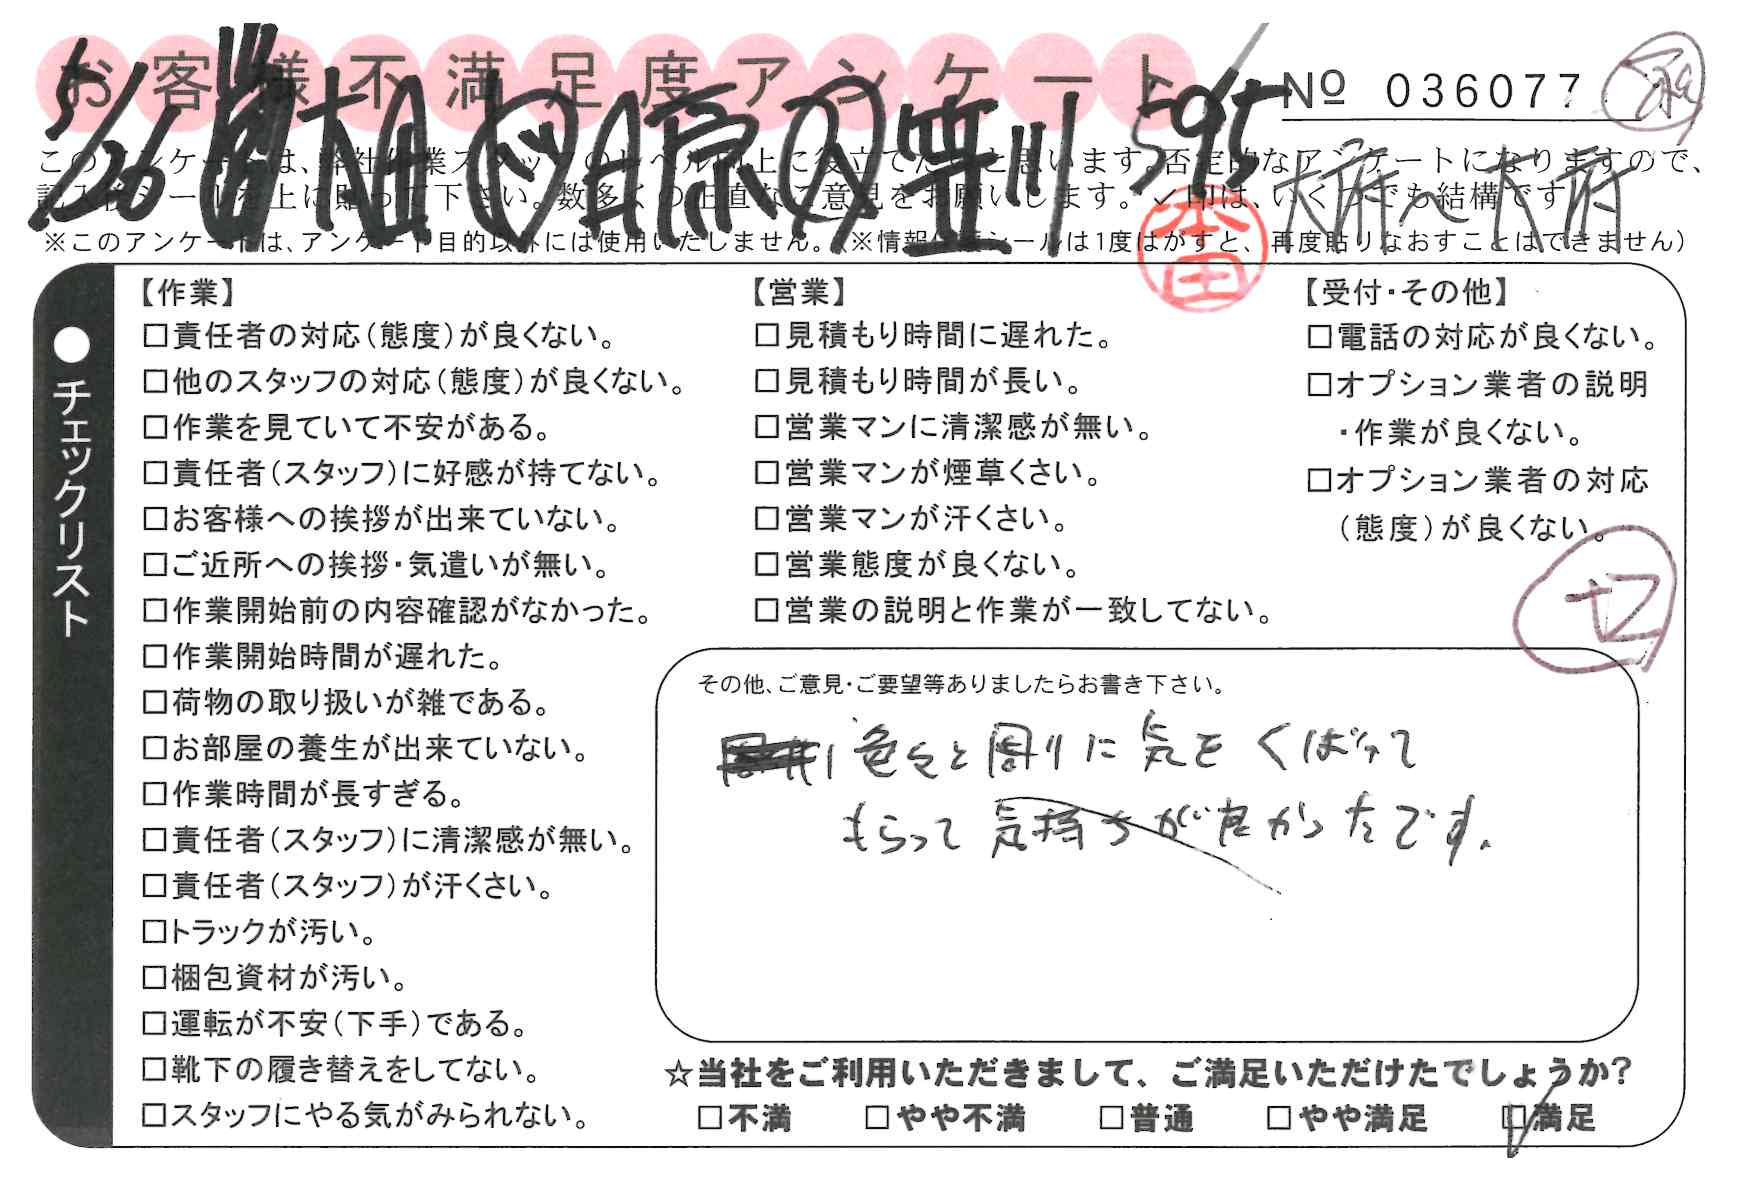 お客様不満足度アンケート
№ 036077
5/26
595
大府へ大府
このアンケートは、弊社作業スタッフのレベル向上に役立てたいと思います。否定的なアンケートになりますので、
記入後シールを上に貼って下さい。数多くの正直なご意見をお願いします。✓印は、いくつでも結構です
※このアンケートは、アンケート目的以外には使用いたしません。(※情報保護シールは1度はがすと、再度貼りなおすことはできません)
●チェックリスト
【作業】
□責任者の対応(態度)が良くない。
□他のスタッフの対応(態度)が良くない。
□作業を見ていて不安がある。
□責任者(スタッフ)に好感が持てない。
□お客様への挨拶が出来ていない。
□ご近所への挨拶・気遣いが無い。
□作業開始前の内容確認がなかった。
□作業開始時間が遅れた。
□荷物の取り扱いが雑である。
□お部屋の養生が出来ていない。
□作業時間が長すぎる。
□責任者(スタッフ)に清潔感が無い。
□責任者(スタッフ)が汗くさい。
□トラックが汚い。
□梱包資材が汚い。
□運転が不安(下手)である。
□靴下の履き替えをしてない。
□スタッフにやる気がみられない。
【営業】
□見積もり時間に遅れた。
□見積もり時間が長い。
□営業マンに清潔感が無い。
□営業マンが煙草くさい。
□営業マンが汗くさい。
□営業態度が良くない。
□営業の説明と作業が一致してない。
【受付・その他】
□電話の対応が良くない。
□オプション業者の説明
・作業が良くない。
□オプション業者の対応
(態度)が良くない。
その他、ご意見・ご要望等ありましたらお書き下さい。
色々と周りに気をくばって
もらって気持ちが良かったです。
☆当社をご利用いただきまして、ご満足いただけたでしょうか?
□不満 □やや不満 □普通 □やや満足 ☑満足